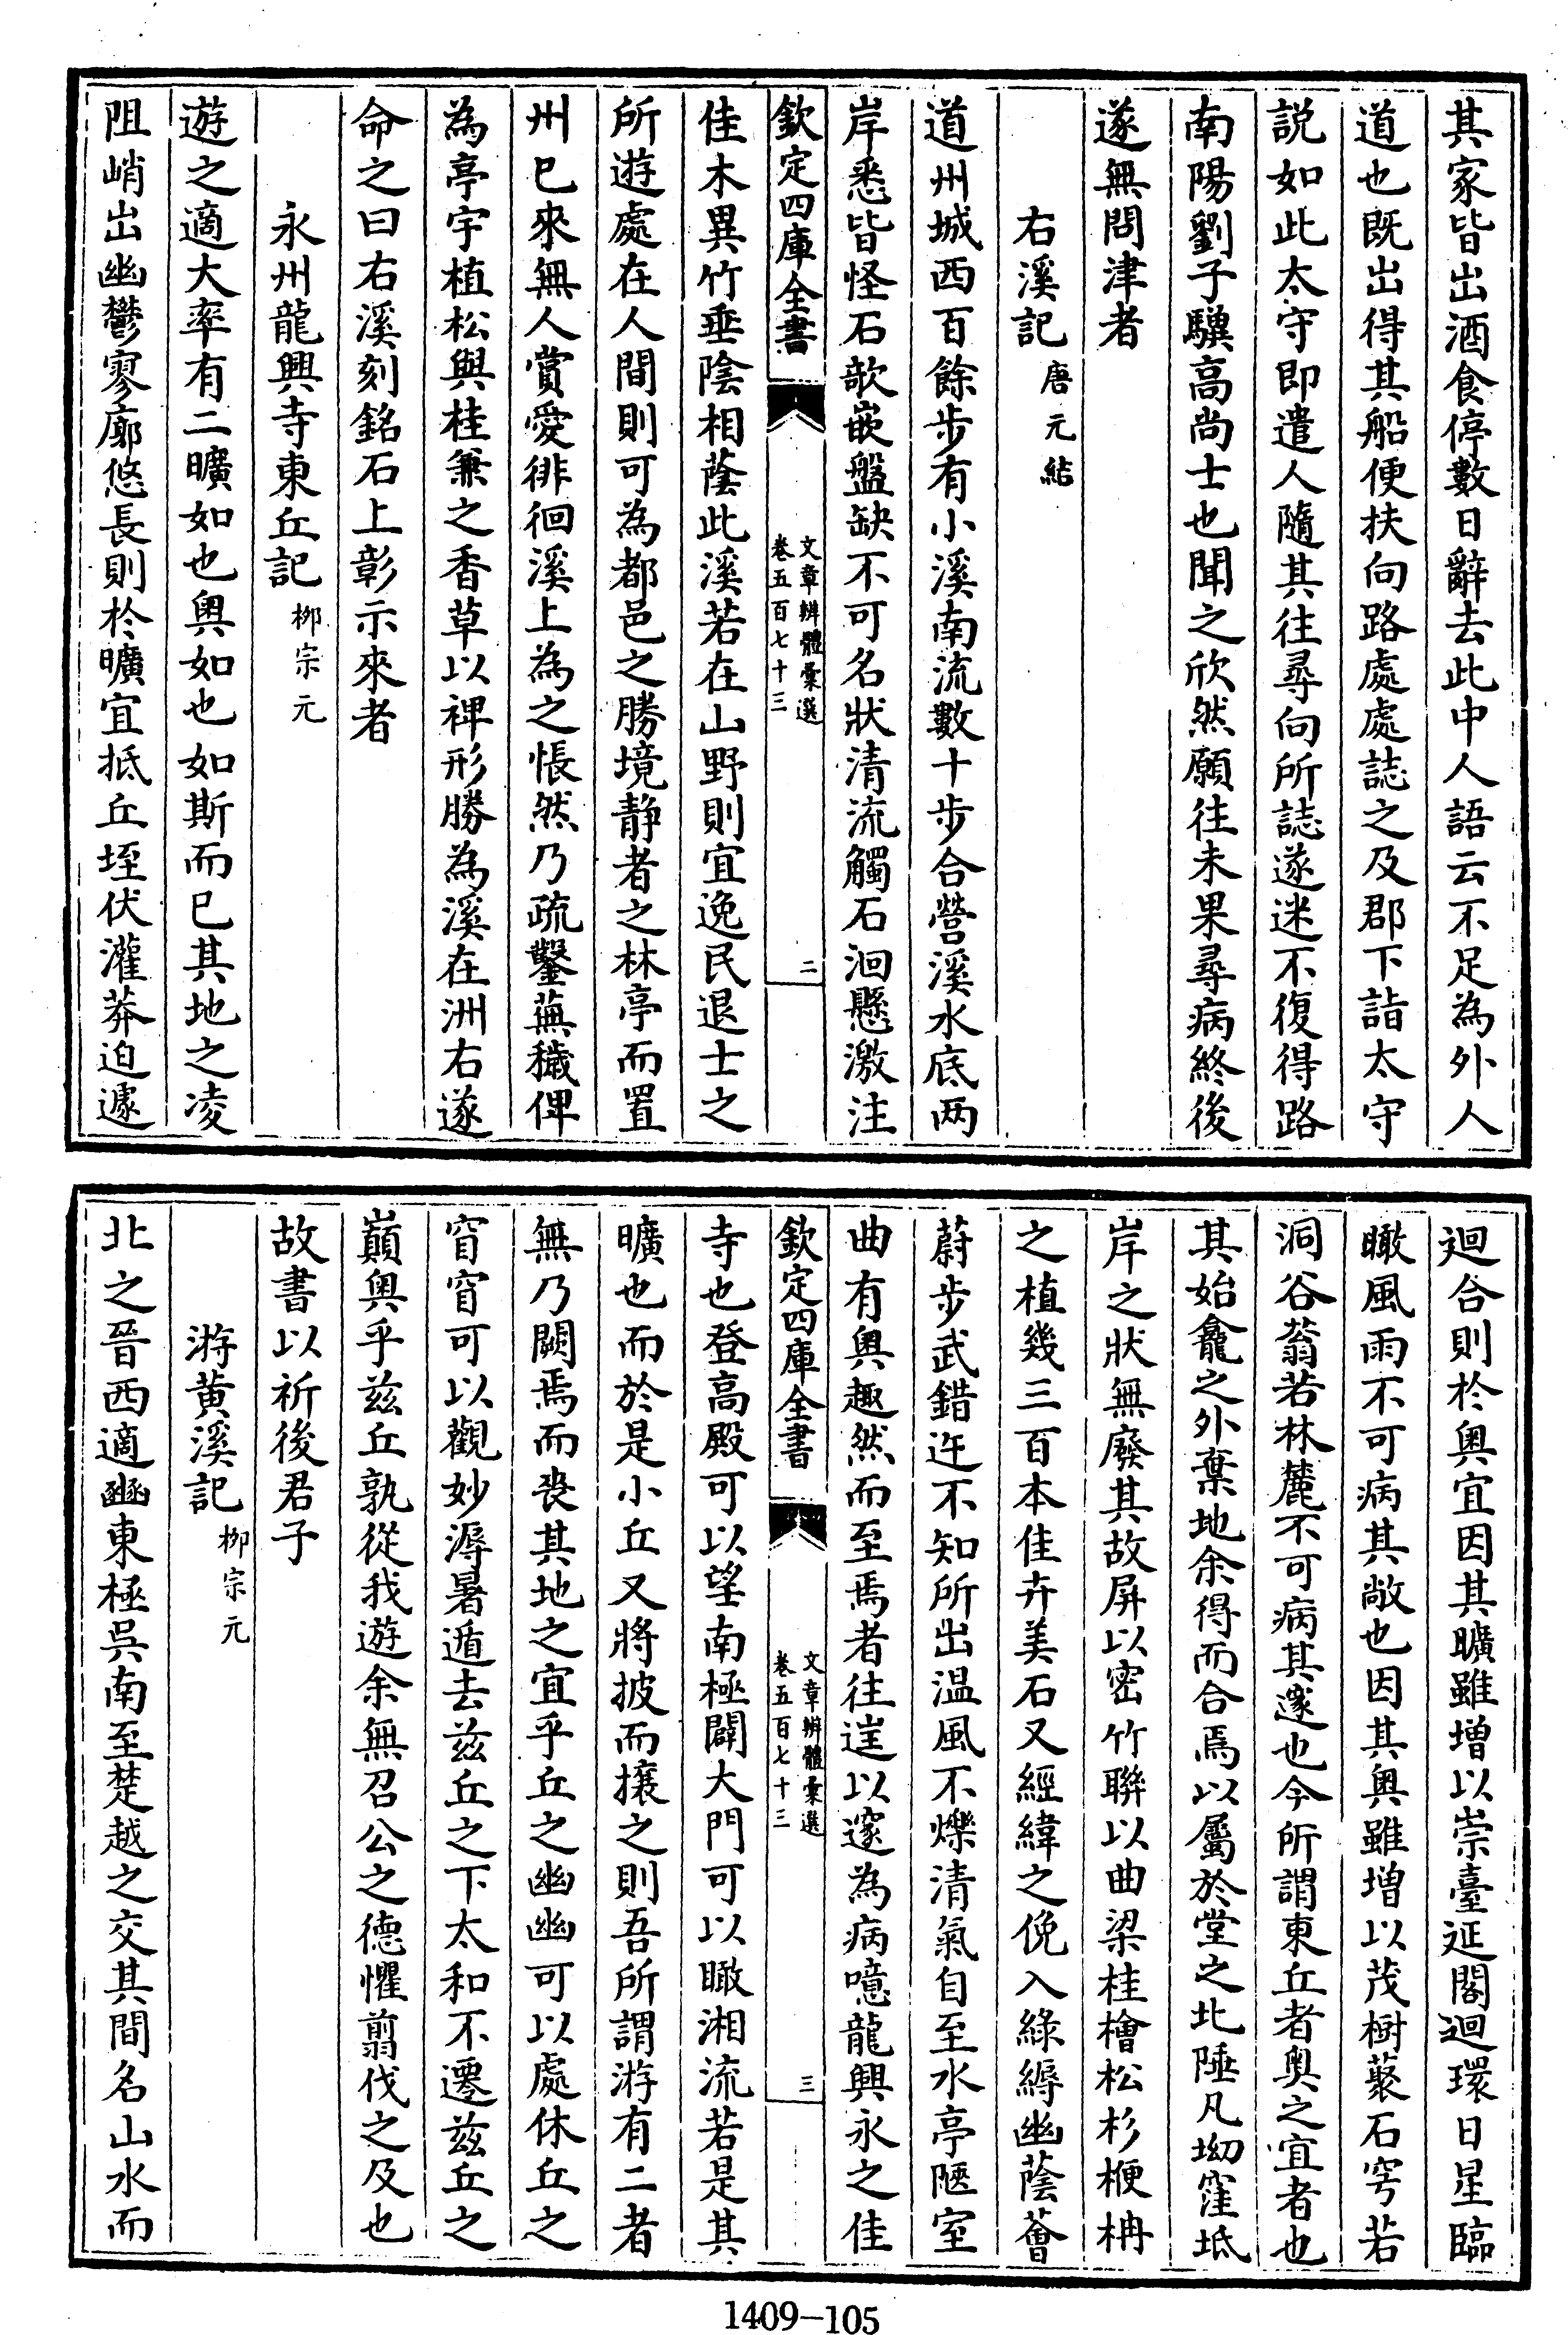 其家皆出酒食停數日辭去此中人語云不足為外人
道也既出得其船便扶向路處處誌之及郡下詣太守
説如此太守即遣人隨其往尋向所誌遂迷不復得路
南陽劉子驥高尚士也聞之欣然願往未果尋病終後
遂無問津者
右溪記 唐元結
道州城西百餘步有小溪南流數十步合營溪水底两
岸悉皆怪石欹嵌盤缺不可名狀清流觸石洄懸激注
欽定四庫全書
文章辨體彚選
卷五百七十三
二
佳木異竹垂陰相蔭此溪若在山野則宜逸民退士之
所遊處在人間則可為都邑之勝境静者之林亭而置
州已來無人賞愛徘徊溪上為之悵然乃疏鑿蕪穢俾
為亭宇植松與桂兼之香草以裨形勝為溪在洲右遂
命之曰右溪刻銘石上彰示來者
永州龍興寺東丘記 柳宗元
遊之適大率有二曠如也奥如也如斯而已其地之凌
阻峭出幽鬱寥廓悠長則於曠宜抵丘垤伏灌莽迫遽
迴合則於奥宜因其曠雖增以崇臺延閣迴環日星臨
瞰風雨不可病其敞也因其奥雖增以茂樹藂石穹若
洞谷蓊若林麓不可病其邃也今所謂東丘者奥之宜者也
其始龕之外棄地余得而合焉以屬於堂之北陲凡坳窪坻
岸之狀無廢其故屏以密竹聯以曲梁桂檜松杉楩柟
之植幾三百本佳卉美石又經緯之俛入綠縟幽蔭薈
蔚步武錯迕不知所出温風不爍清氣自至水亭陿室
曲有奥趣然而至焉者往迬以邃為病噫龍興永之佳
欽定四庫全書
文章辨體彚選
卷五百七十三
三
寺也登高殿可以望南極闢大門可以瞰湘流若是其
曠也而於是小丘又將披而攘之則吾所謂游有二者
無乃闕焉而丧其地之宜乎丘之幽幽可以處休丘之
窅窅可以觀妙溽暑遁去兹丘之下太和不遷兹丘之
巔奥乎兹丘孰從我遊余無召公之德懼翦伐之及也
故書以祈後君子
游黄溪記 柳宗元
北之晉西適豳東極吳南至楚越之交其間名山水而
1409-105